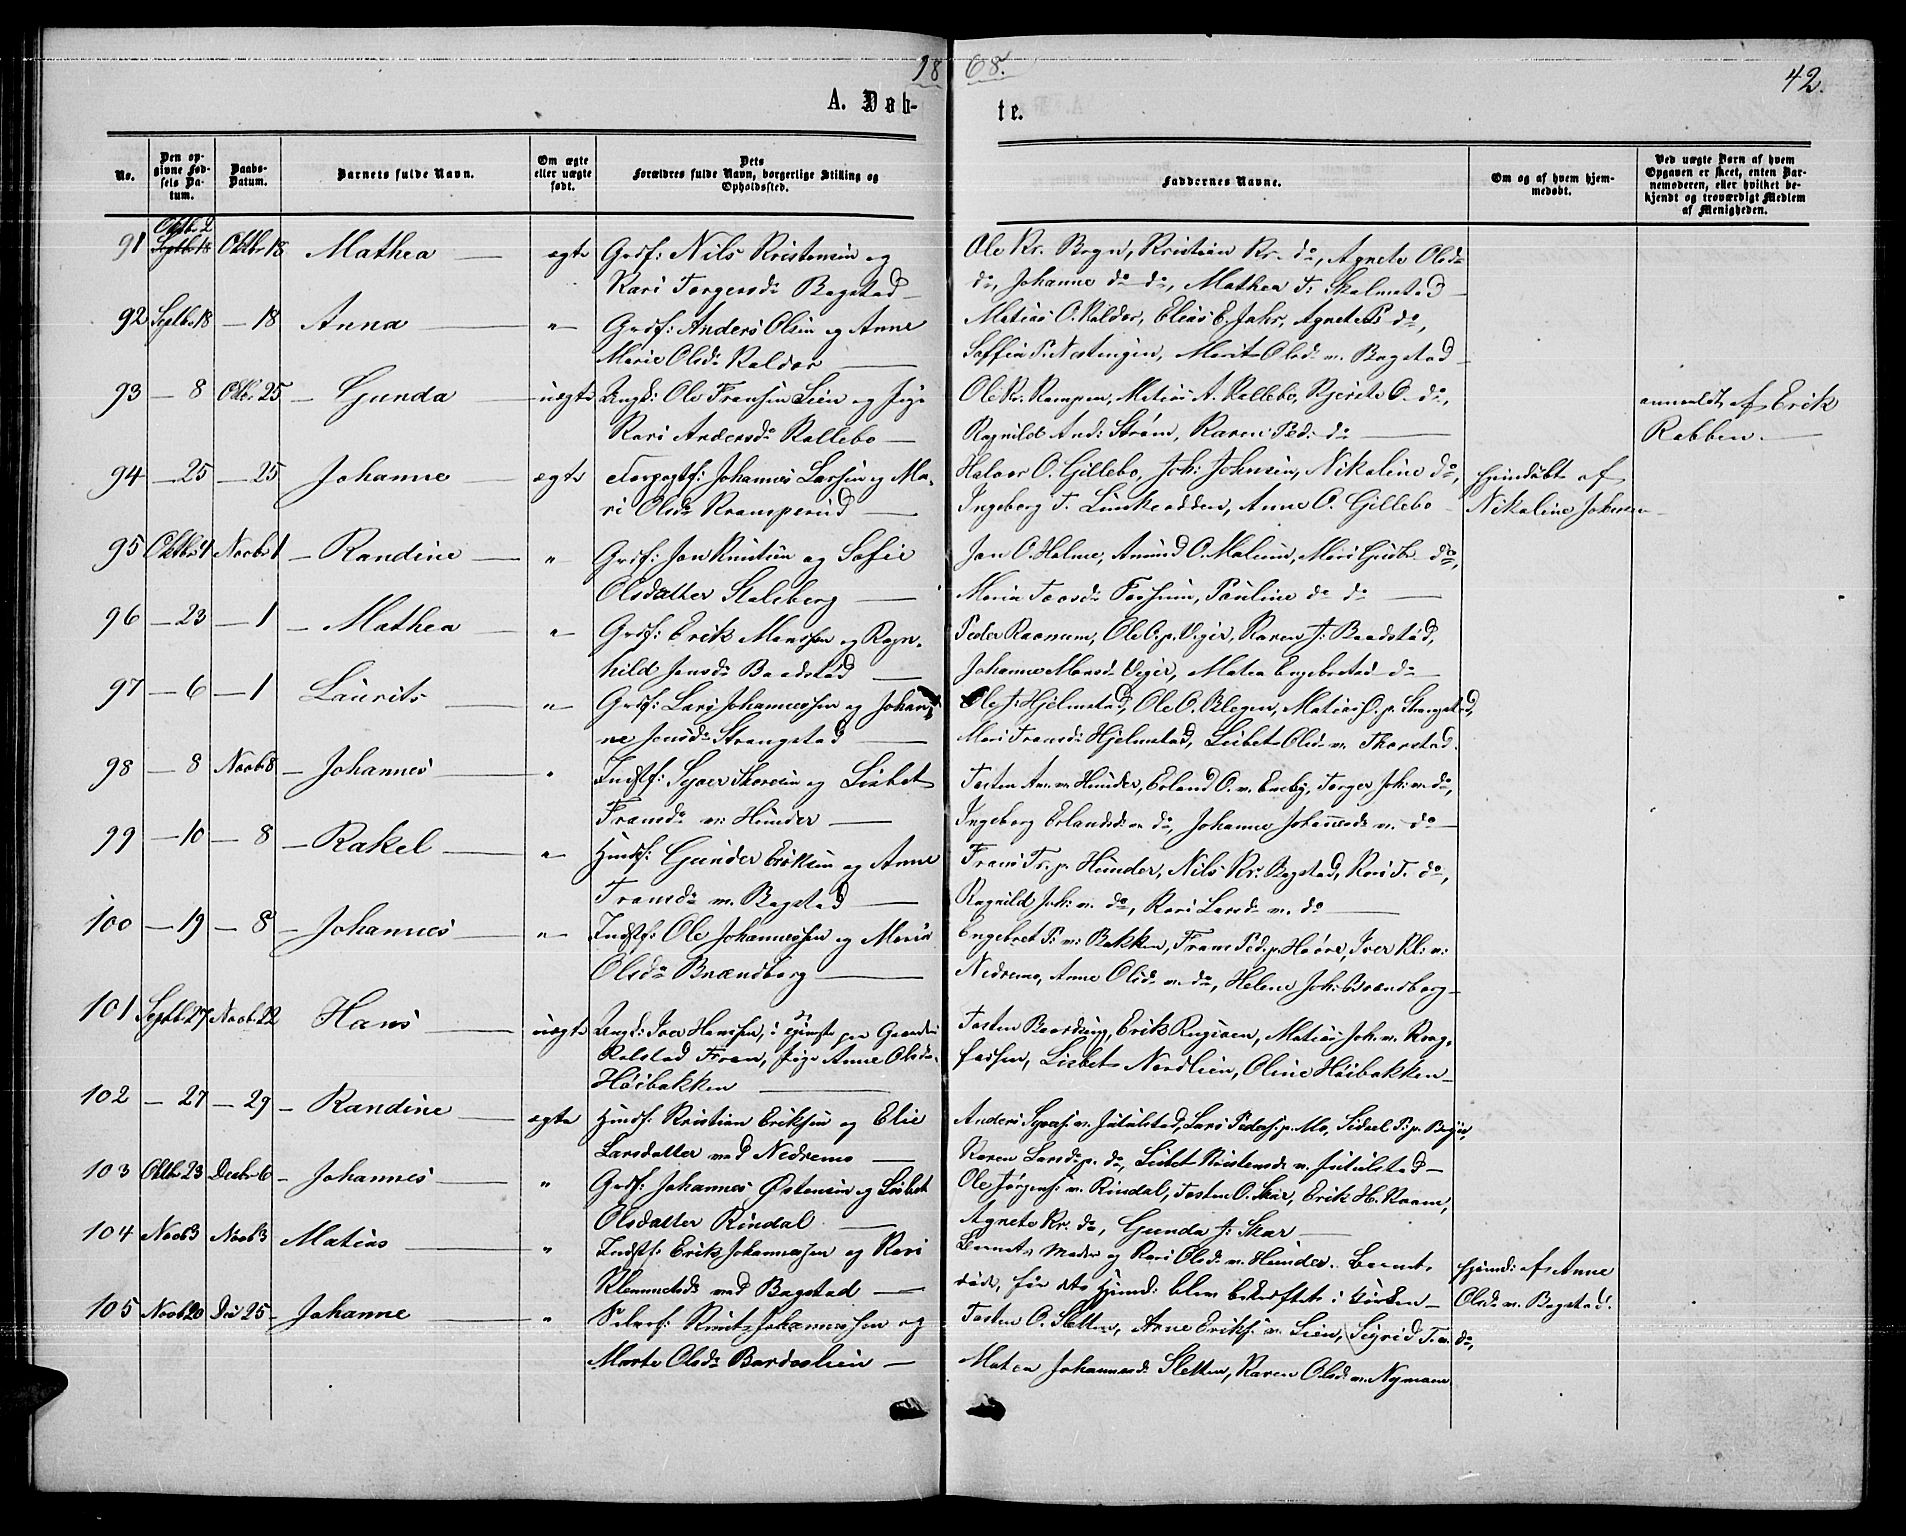 1868.
42.
A. Døbte.
No.
Den opgivne Fødsels Datum.
Daabs-Datum.
Barnets fulde Navn.
Om ægte eller uægte født.
Dets Forældres fulde Navn, borgerlige Stilling og Opholdssted.
Faddernes Navne.
Om og af hvem hjemmedøbt.
Ved uægte Børn af hvem Opgaven er skeet, enten Barnemoderen, eller hvilket bekjendt og troværdigt Medlem af Menigheden.
91 Oktb. 2 Septb. 18 Oktbr 18 Mathea — ægte Grdf: Nils Kristensen og
Kari Torgersd. Bogstad —
Ole Kr. Bryn, Kristian Kr. do, Agnete Olsd.
do, Johanne do do, Mathea T. Skalmstad
92 Septbr 18 — 18 Anna — " Grdf: Anders Olsen og Anne
Marie Olsd. Kaldor —
Matias O. Kaldor, Elias E. Jahr, Agnete P. do,
Soffia P. Nastengen, Marit Olsd. m. Bogstad
93 — 8 Oktb. 25 — Gunda — uægte Ungk: Ole Fransen Lien og Pige
Kari Andersd. Kallebo —
Ole Kr. Kampen, Matias A. Kallebo, Kjerste O. do,
Ragnild And: Strøm, Karen Ped: do —
anmeldt af Erik
Robben. —
94 — 25 — 25 Johanne — ægte Forpagtf: Johannes Larsen og Ma-
ri Olsd. Kramperud —
Halvor O. Gillebo, Joh: Johnsen, Nikoline do,
Ingeborg T. Linkeodden, Anne O. Gillebo
hjemdøbt af
Nikoline Johnsen
95 Oktbr 1 Novb 1 — Randine — " Grdf: Jon Knutsen og Sofie
Olsdatter Staleberg —
Jon O. Holme, Amund O. Maleun, Mari Gudb. do,
Maria Toosd. Fossum, Pauline do do —
96 — 23 — 1 — Mathea — " Grdf: Erik Monssen og Ragn-
hild Jensd. Baadstad —
Peder Raanum, Ole O. p. Veger, Karen J: Baadstad,
Johanne Monsd. Veger, Matea Engebretsd. do —
97 — 6 — 1 Laurits — " Grdf: Lars Johannessen og Johan-
ne Jensd. Strangstad —
Ole J: Hjelmstad, Ole O. Klegen, Matias O. p. Strangstad,
Mari Fransd. Hjelmstad, Lisbet Olsd. m. Thorstad.
98 — 8 Novb 8 — Johannes — " Indstf: Syver Thoresen og Lisbet
Fransd. m. Hunder —
Tosten An. m. Hunder, Erland O. m. Eneby, Torger Joh: m. do,
Ingeborg Erlandsd. m. do, Johanne Johannesd. m. do —
99 — 10 — 8 — Rakel — " Husf: Gunder Eriksen og Anne
Fransd. m. Bogstad —
Frans Fr. p. Hunder, Nils Kr. Bogstad, Kari T. do,
Ragnild Joh: m. do, Kari Larsd. m. do —
100 — 19 — 8 — Johannes — " Indstf: Ole Johannessen og Marie
Olsd. Brændborg —
Engebret P. m. Bakken, Frans Ped. p. Haave, Iver Kl: m:
Nedremo, Anne Olsd. m. do, Helene Joh: Brændborg —
101 Septb. 27 Novb. 22 Hans — uægte Ungk: Iver Hanssen, i Tjeneste paa Gaarden
Kolstad Fron, Pige Anne Olsd.
Høibakken —
Tosten Baardseng, Erik Rugsveen, Matias Joh. m. Krag-
fossen, Lisbet Nordlien, Oline Høibakken —
102 — 27 — 29 — Randine — ægte Husf: Kristian Eriksen og Elie
Larsdatter med Nedremo —
Anders Syvers. m. Jutulstad, Lars Peders. p. Mo, Sidsel P. p. Bryn,
Karen Larsd. p. do, Lisbet Kristensd. m. Jutulstad —
103 Oktb. 23 Decb 6 — Johannes — " Grdf: Johannes Østensen og Lisbet
Olsdatter Rindal —
Ole Jørgens. m. Rindal, Tosten O. Skar, Erik H. Kraam,
Agnete Kr. do, Gunda J: Skar —
104 Novb 3 Novb 3 Matias — " Indstf: Erik Johannessen og Kari
Klemmetsd. med Bogstad —
Barnets Moder og Kari Olsd. m. Hunder. Barnet
døde, før dets hjemd: blev bekræftet i Kirken —
hjemd: af Anne
Olsd. m. Bogstad.
105 Novb 20 Dec 25 — Johanne — " Selvf: Knut Johannessen og
Marte Olsd. Bardoslien —
Tosten O. Sletten, Arne Eriks. m. Lien, Sigrid T. m. do,
Matea Johannesd. Sletten, Karen Olsd. m. Nymoen